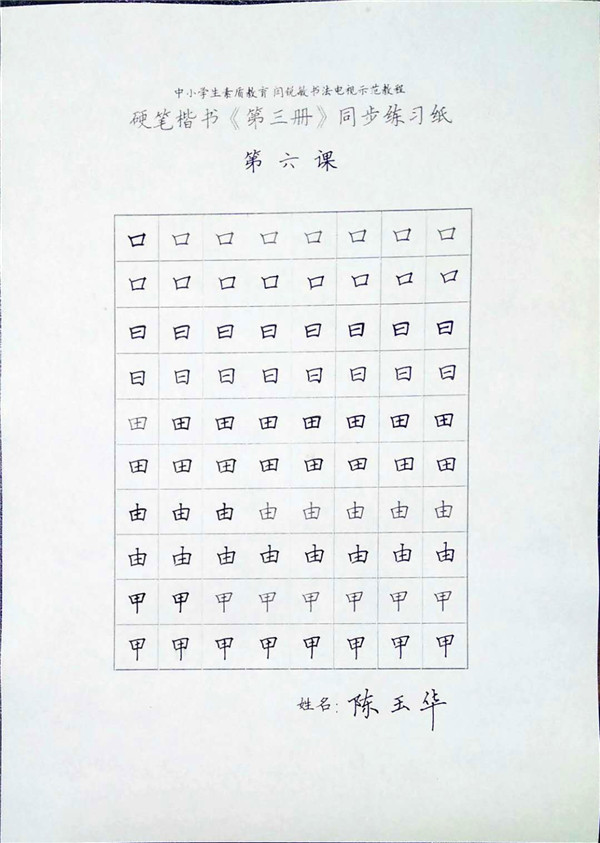 中小学生素质教育 闫锐敏书法电视示范教程
硬笔楷书《第三册》同步练习纸
第六课
口口口口口口口口
口口口口口口口口
曰曰曰曰曰曰曰曰
曰曰曰曰曰曰曰曰
田田田田田田田田
田田田田田田田田
由由由由由由由由
由由由由由由由由
甲甲甲甲甲甲甲甲
甲甲甲甲甲甲甲甲
姓名：陈玉华